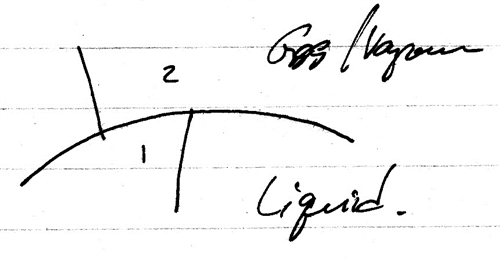 2 Gas / Vapour
1
Liquid.